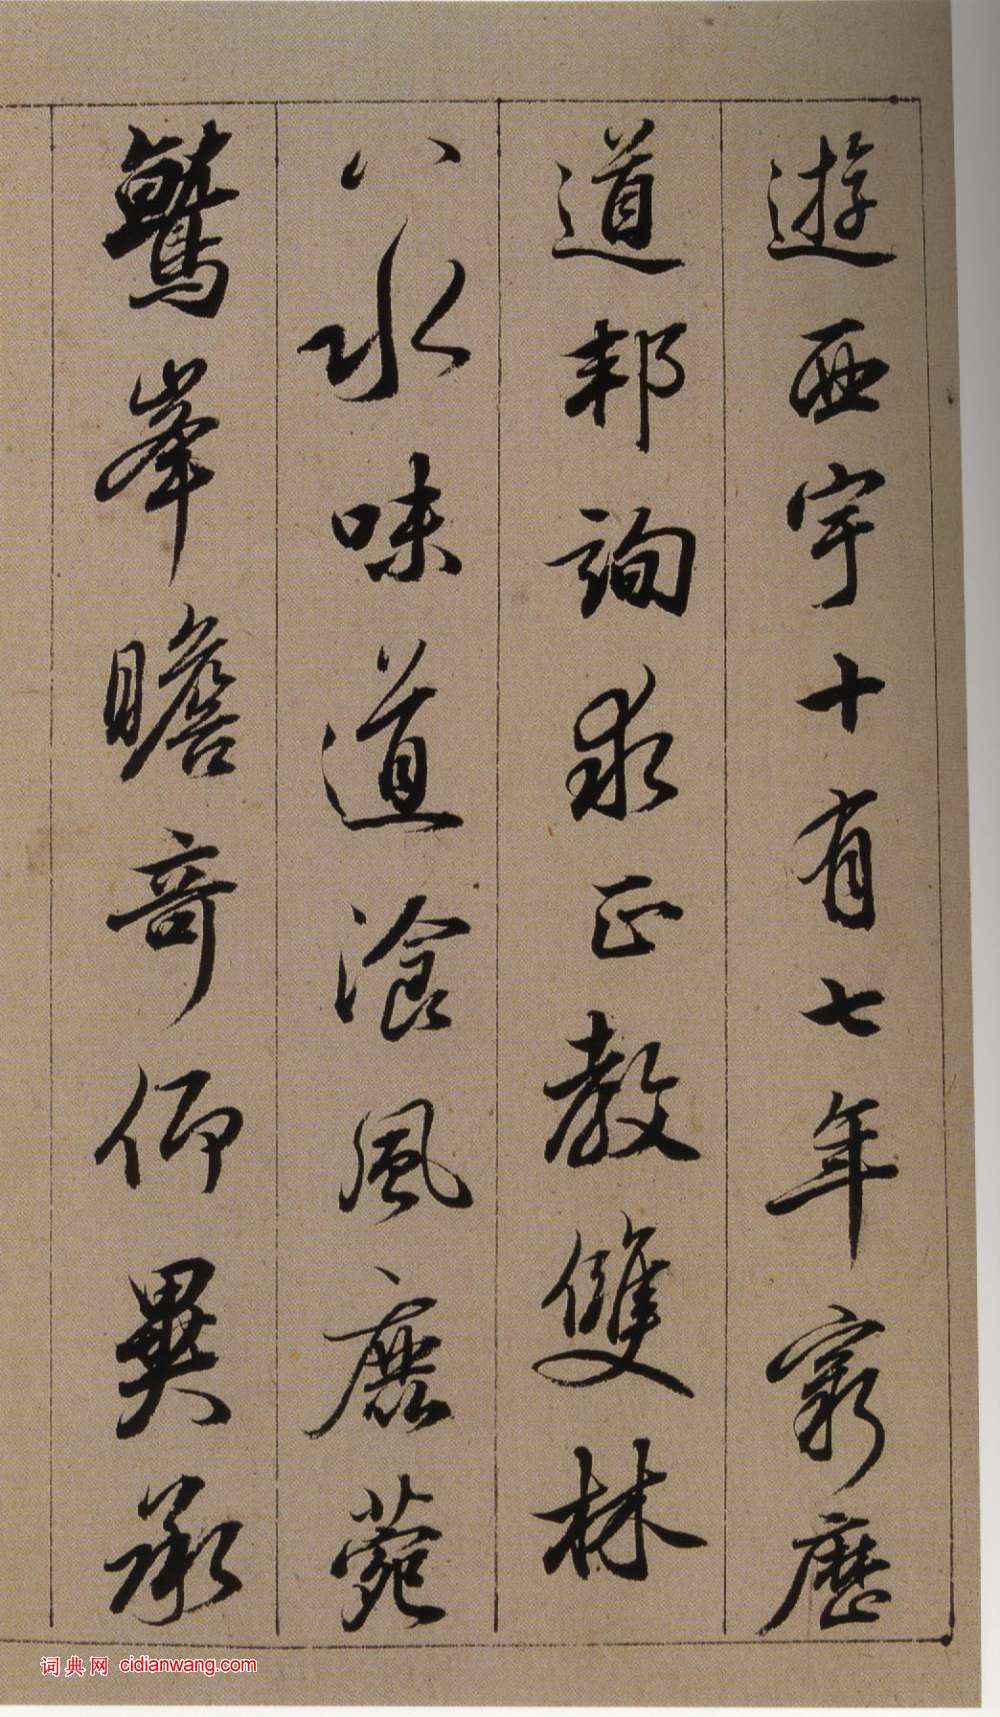 遊西宇十有七年窮歷
道邦詢求正教雙林
八水味道飡風鹿菀
鷲峯瞻奇仰異承
词典网 cidianwang.com